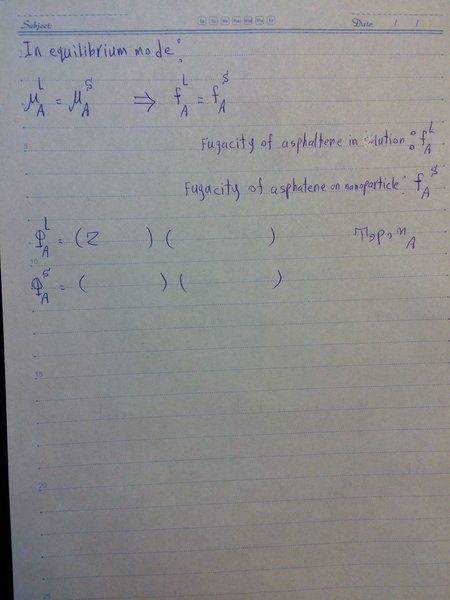 Subject:
Date / /
In equilibrium mode:
μ_A^L = μ_A^S ⇒ f_A^L = f_A^S
Fugacity of asphaltene in solution: f_A^L
Fugacity of asphalene on nanoparticle: f_A^S
φ_A^L = (Z ) ( ) T, p, n_A
φ_A^S = ( ) ( )